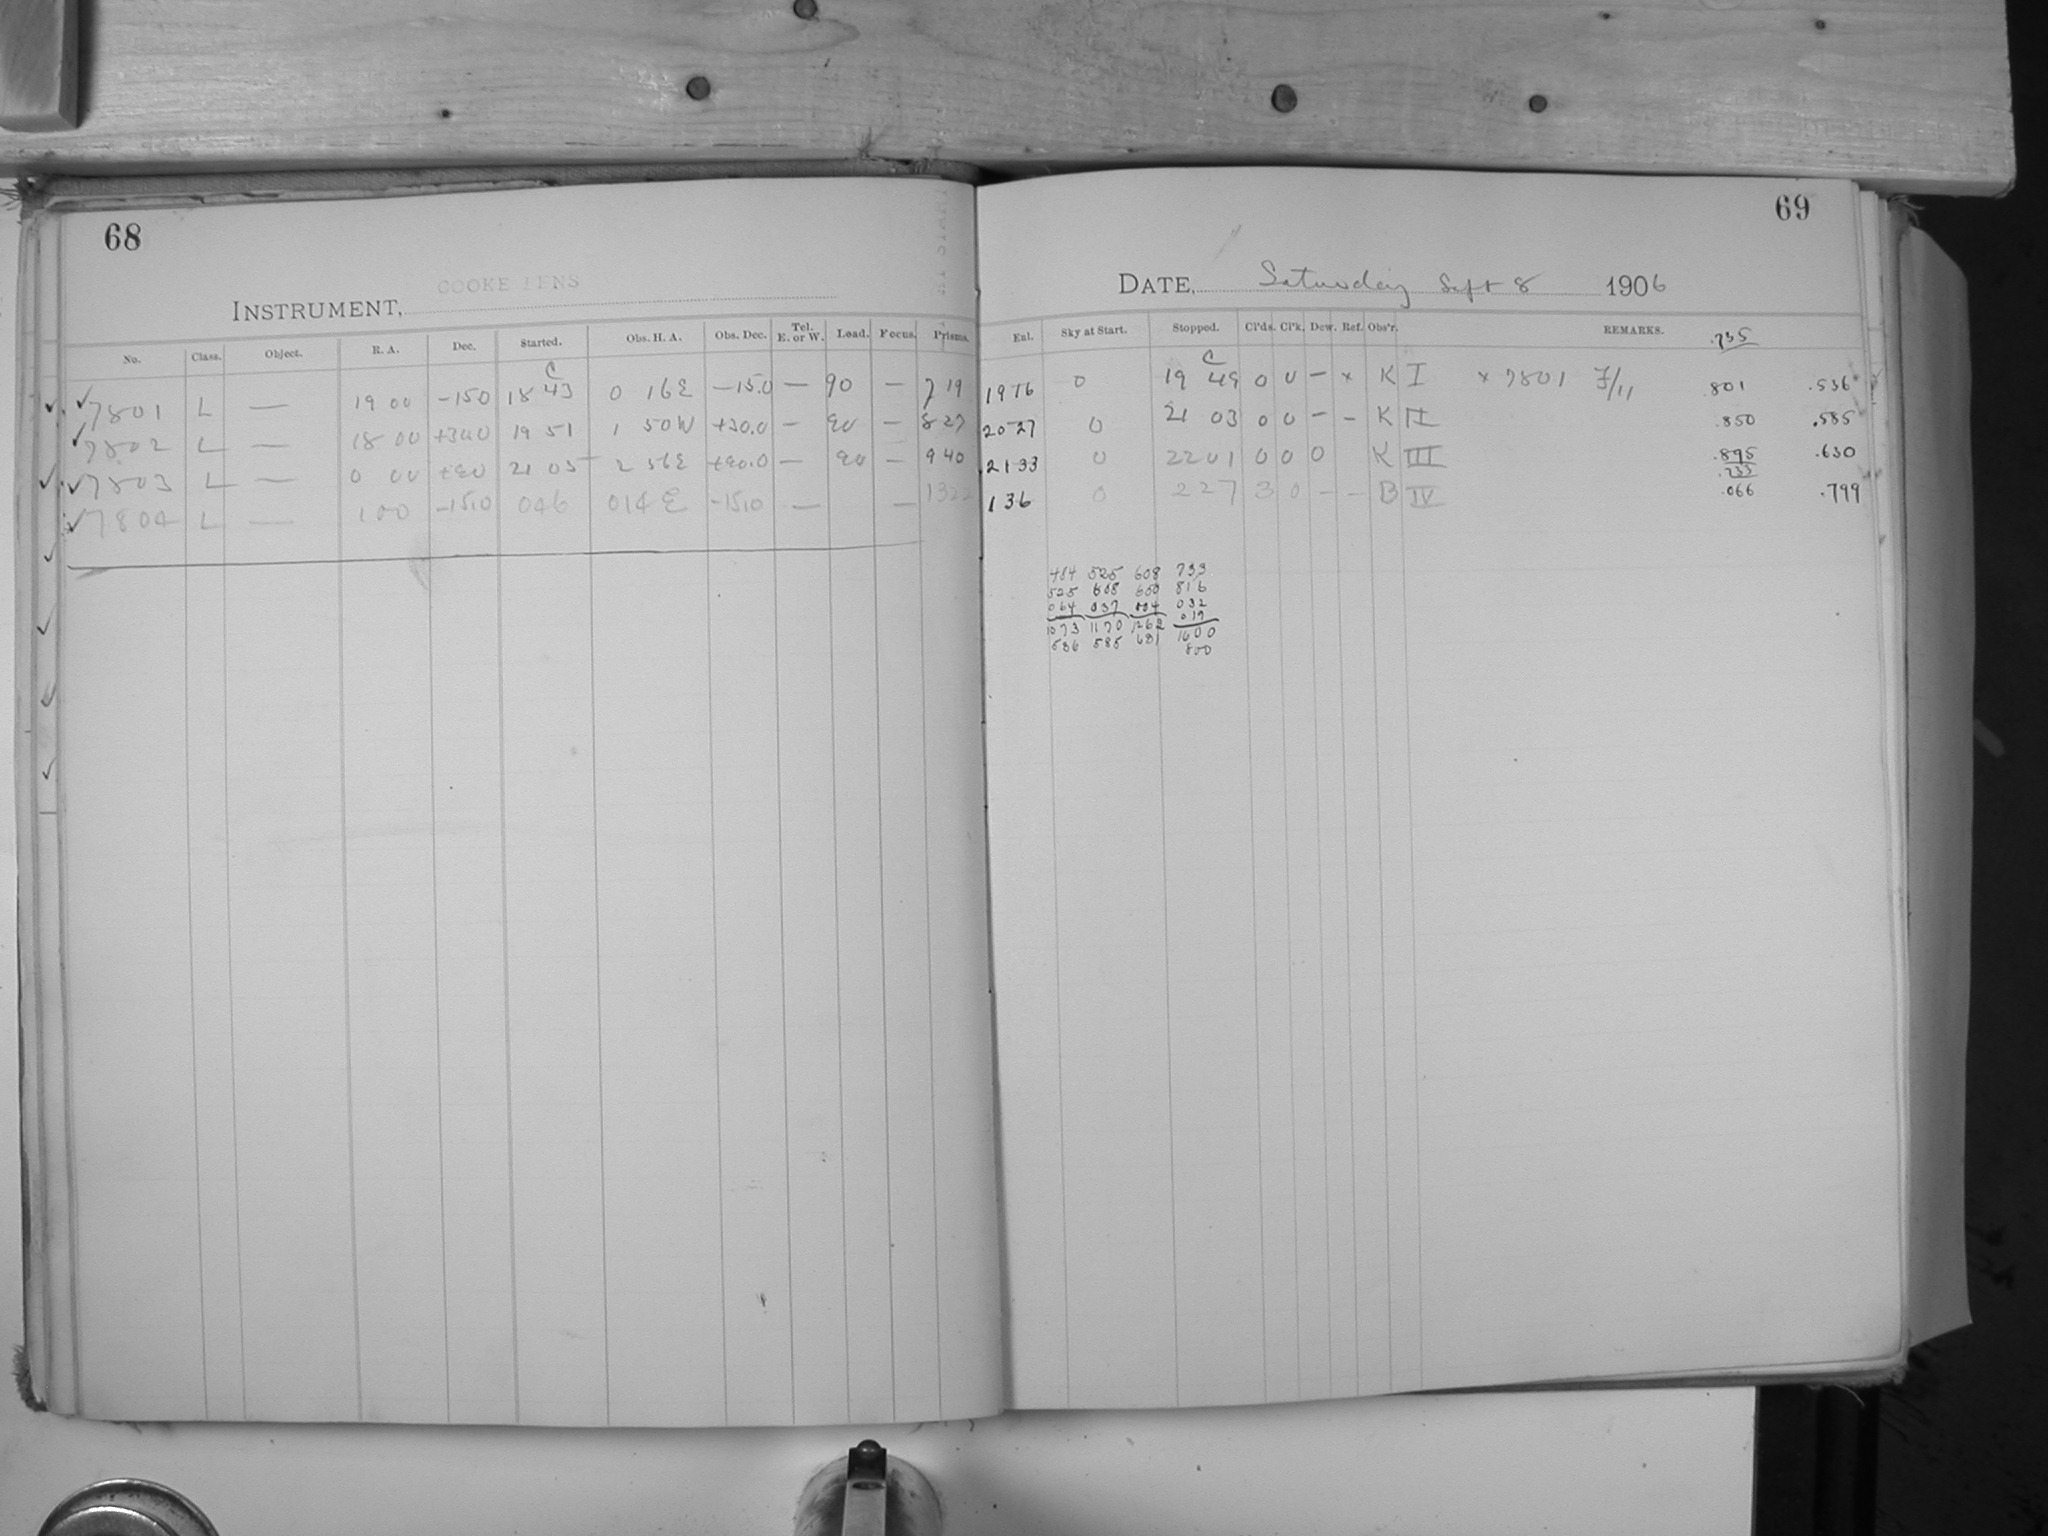 68
COOKE LENS
INSTRUMENT,
No. Class. Object. R. A. Dec. Started. Obs. H. A. Obs. Dec. Tel. E. or W. Load. Focus. Prisms.
7801 L — 19 00 -15.0 18 43 0 16E -15.0 — 90 — 7 19
7802 L — 18 00 +30.0 19 51 1 50W +30.0 — 90 — 8 27
7803 L — 0 00 +90 21 05 2 56E +90.0 — 90 — 9 40
7804 L — 1 00 -15.0 0 46 0 14E -15.0 — — 1322
69
DATE, Saturday Sept 8 1906
Enl. Sky at Start. Stopped. Cl'ds. Cl'k. Dew. Ref. Obs'r. REMARKS. .735
1916 0 19 49 0 0 – × K I × 7801 F/11 .801 .536
2027 0 21 03 0 0 – – K II .850 .585
2133 0 22 01 0 0 0 K III .895 .630
.733
136 0 2 27 3 0 – – B IV .066 .799
484 525 608 733
525 608 650 816
064 037 004 032
017
1073 1170 1262 1600
536 585 631 800